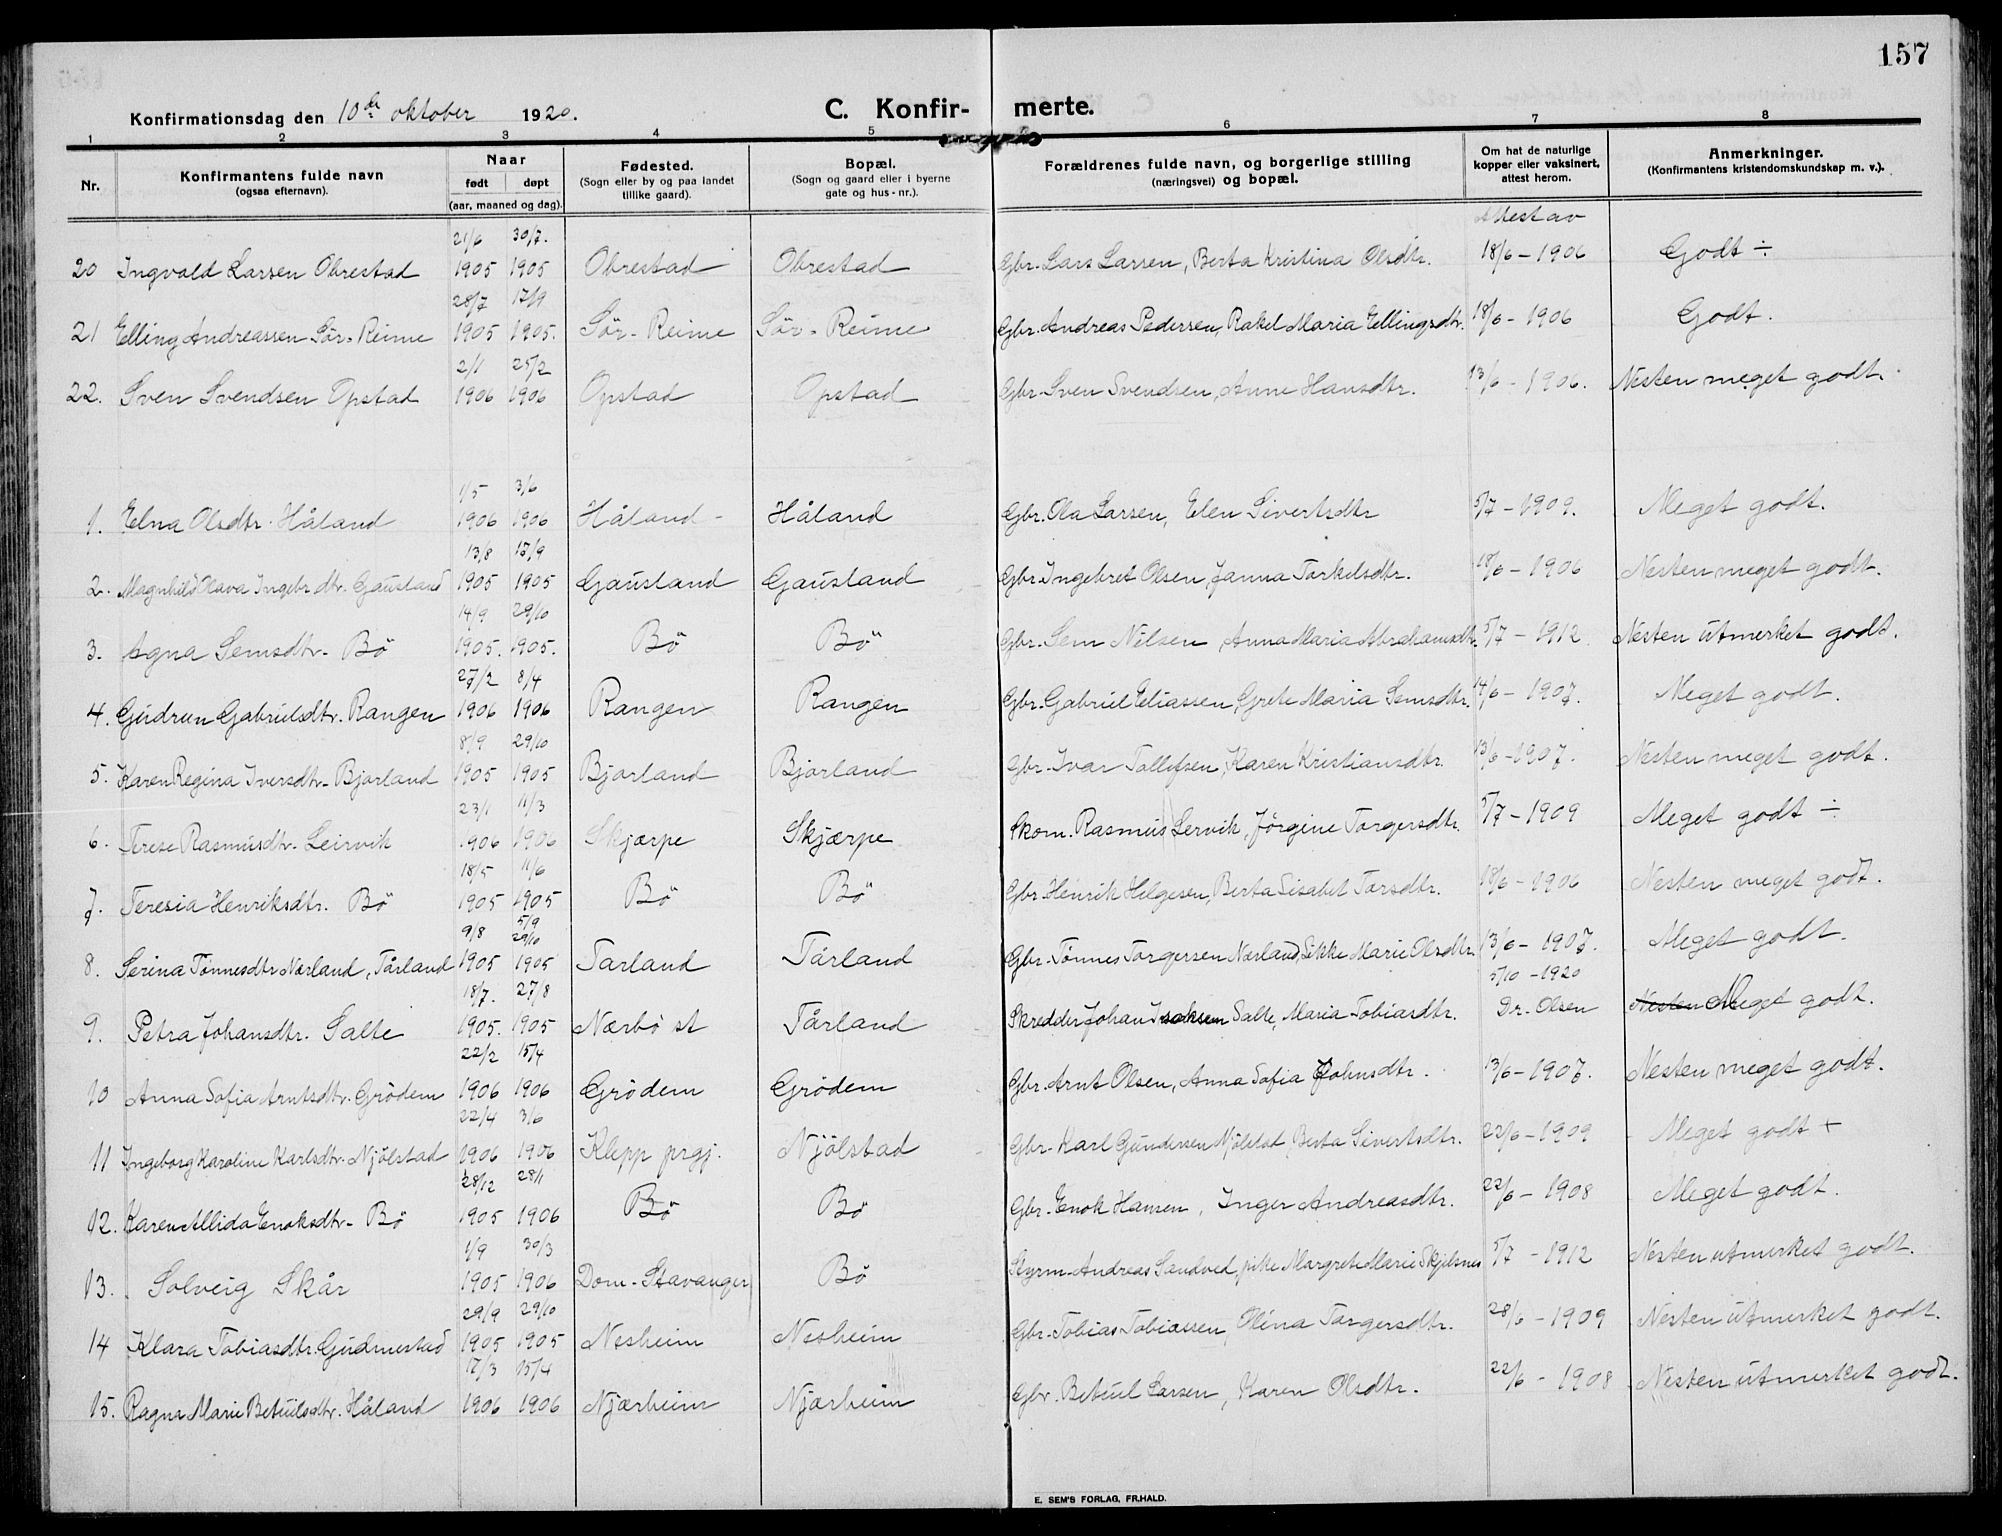 157
Konfirmationsdag den 10de oktober 1920. C. Konfir- merte.
1 2 3 4 5 6 7 8
Nr. Konfirmantens fulde navn (ogsaa efternavn). Naar født døpt (aar, maaned og dag). Fødested. (Sogn eller by og paa landet tillike gaard). Bopæl. (Sogn og gaard eller i byerne gate og hus-nr.). Forældrenes fulde navn, og borgerlige stilling (næringsvei) og bopæl. Om hat de naturlige kopper eller vaksinert, attest herom. Anmerkninger. (Konfirmantens kristendomskundskap m. v.).
Attest av
21/6 30/7.
20 Ingvald Larsen Obrestad 1905 1905 Obrestad Obrestad Gbr. Lars Larsen, Berta Kristina Olsdtr. 18/6 - 1906 Godt ÷
28/7 17/9
21 Elling Andreassen Sør-Reime 1905 1905. Sør-Reime Sør-Reime Gbr. Andreas Pedersen, Rakel Maria Ellingsdtr. 18/6 - 1906 Godt.
2/1 25/2
22. Sven Svendsen Opstad 1906 1906 Opstad Opstad Gbr. Sven Svendsen, Anne Hansdtr. 13/6 - 1906. Nesten meget godt.
1/5 3/6
1. Elna Olsdtr. Håland 1906 1906 Håland Håland Gbr. Ola Larsen, Elen Sivertsdtr 5/7 - 1909. Meget godt.
13/8 17/9
2. Magnhild Olava Ingebr.dtr. Gausland 1905 1905 Gausland Gausland Gbr. Ingebret Olsen, Janna Torkelsdtr. 18/6 - 1906 Nesten meget godt.
14/9 29/10
3. Agna Semsdtr. Bö 1905. 1905. Bö Bö Gbr. Sem Nilsen, Anna Maria Abrahamsdtr. 5/7 - 1912. Nesten utmerket godt.
27/2 8/4
4. Gudrun Gabrielsdtr. Rangen 1906 1906 Rangen Rangen Gbr. Gabriel Eliassen, Grete Maria Semsdtr. 14/6 - 1907. Meget godt.
8/9 29/10
5. Karen Regina Iversdtr. Bjorland 1905 1905 Bjorland Bjorland Gbr. Ivar Tollefsen, Karen Kristiansdtr. 13/6 - 1907. Nesten meget godt.
23/1 11/3
6. Terese Rasmusdtr. Leirvik 1906 1906 Skjærpe Skjærpe Skom. Rasmus Lervik, Jørgine Torgersdtr. 5/7 - 1909 Meget godt ÷
18/5 11/6
7. Teresia Henriksdtr. Bö 1905 1905 Bö Bö Gbr. Henrik Helgesen, Berta Lisabet Torsdtr. 18/6 - 1906 Nesten meget godt.
9/8 5/9 29/10
8. Serina Tønnesdtr Nærland, Tårland 1905 1905 Tarland Tårland Gbr. Tønnes Torgersen Nærland, Sikke Marie Olsdtr. 13/6 - 1907. Meget godt.
18/7. 27/8 5/10 - 1920
9. Petra Johansdtr. Salte 1905. 1905 Nærbö st Tårland Skredder Johan Isaksen Salte, Maria Tobiasdtr. Dr. Olsen Nesten Meget godt.
22/2 15/4
10 Anna Sofia Arntsdtr. Grödem 1906 1906 Grödem Grödem Gbr. Arnt Olsen, Anna Sofia Johnsdtr. 13/6 - 1907. Nesten meget godt.
22/4 3/6
11 Ingeborg Karoline Karlsdtr. Njölstad 1906 1906 Klepp prgj. Njölstad Gbr. Karl Gundersen Njölstad, Berta Sivertsdtr. 22/6 - 1909 Meget godt +
28/12 28/1
12. Karen Allida Enoksdtr. Bö 1905 1906 Bö Bö Gbr. Enok Hansen, Inger Andreasdtr. 22/6 - 1908 Meget godt.
1/9 30/3
13. Solveig Skår 1905 1906 Dom-Stavanger Bö Styrm. Andreas Sandved, pike Margrete Marie Skjelsnes 5/7 - 1912 Nesten utmerket godt.
29/9 29/10
14 Klara Tobiasdtr. Gudmestad 1905 1905 Nesheim Nesheim Gbr. Tobias Tobiassen, Olina Torgersdtr. 28/6 - 1909 Nesten utmerket godt.
17/3 15/4
15. Ragna Marie Betuelsdtr. Håland 1906 1906 Njærheim Njærheim Gbr. Betuel Larsen, Karen Olsdtr. 22/6 - 1908 Nesten utmerket godt.
E. SEM'S FORLAG, FR.HALD.